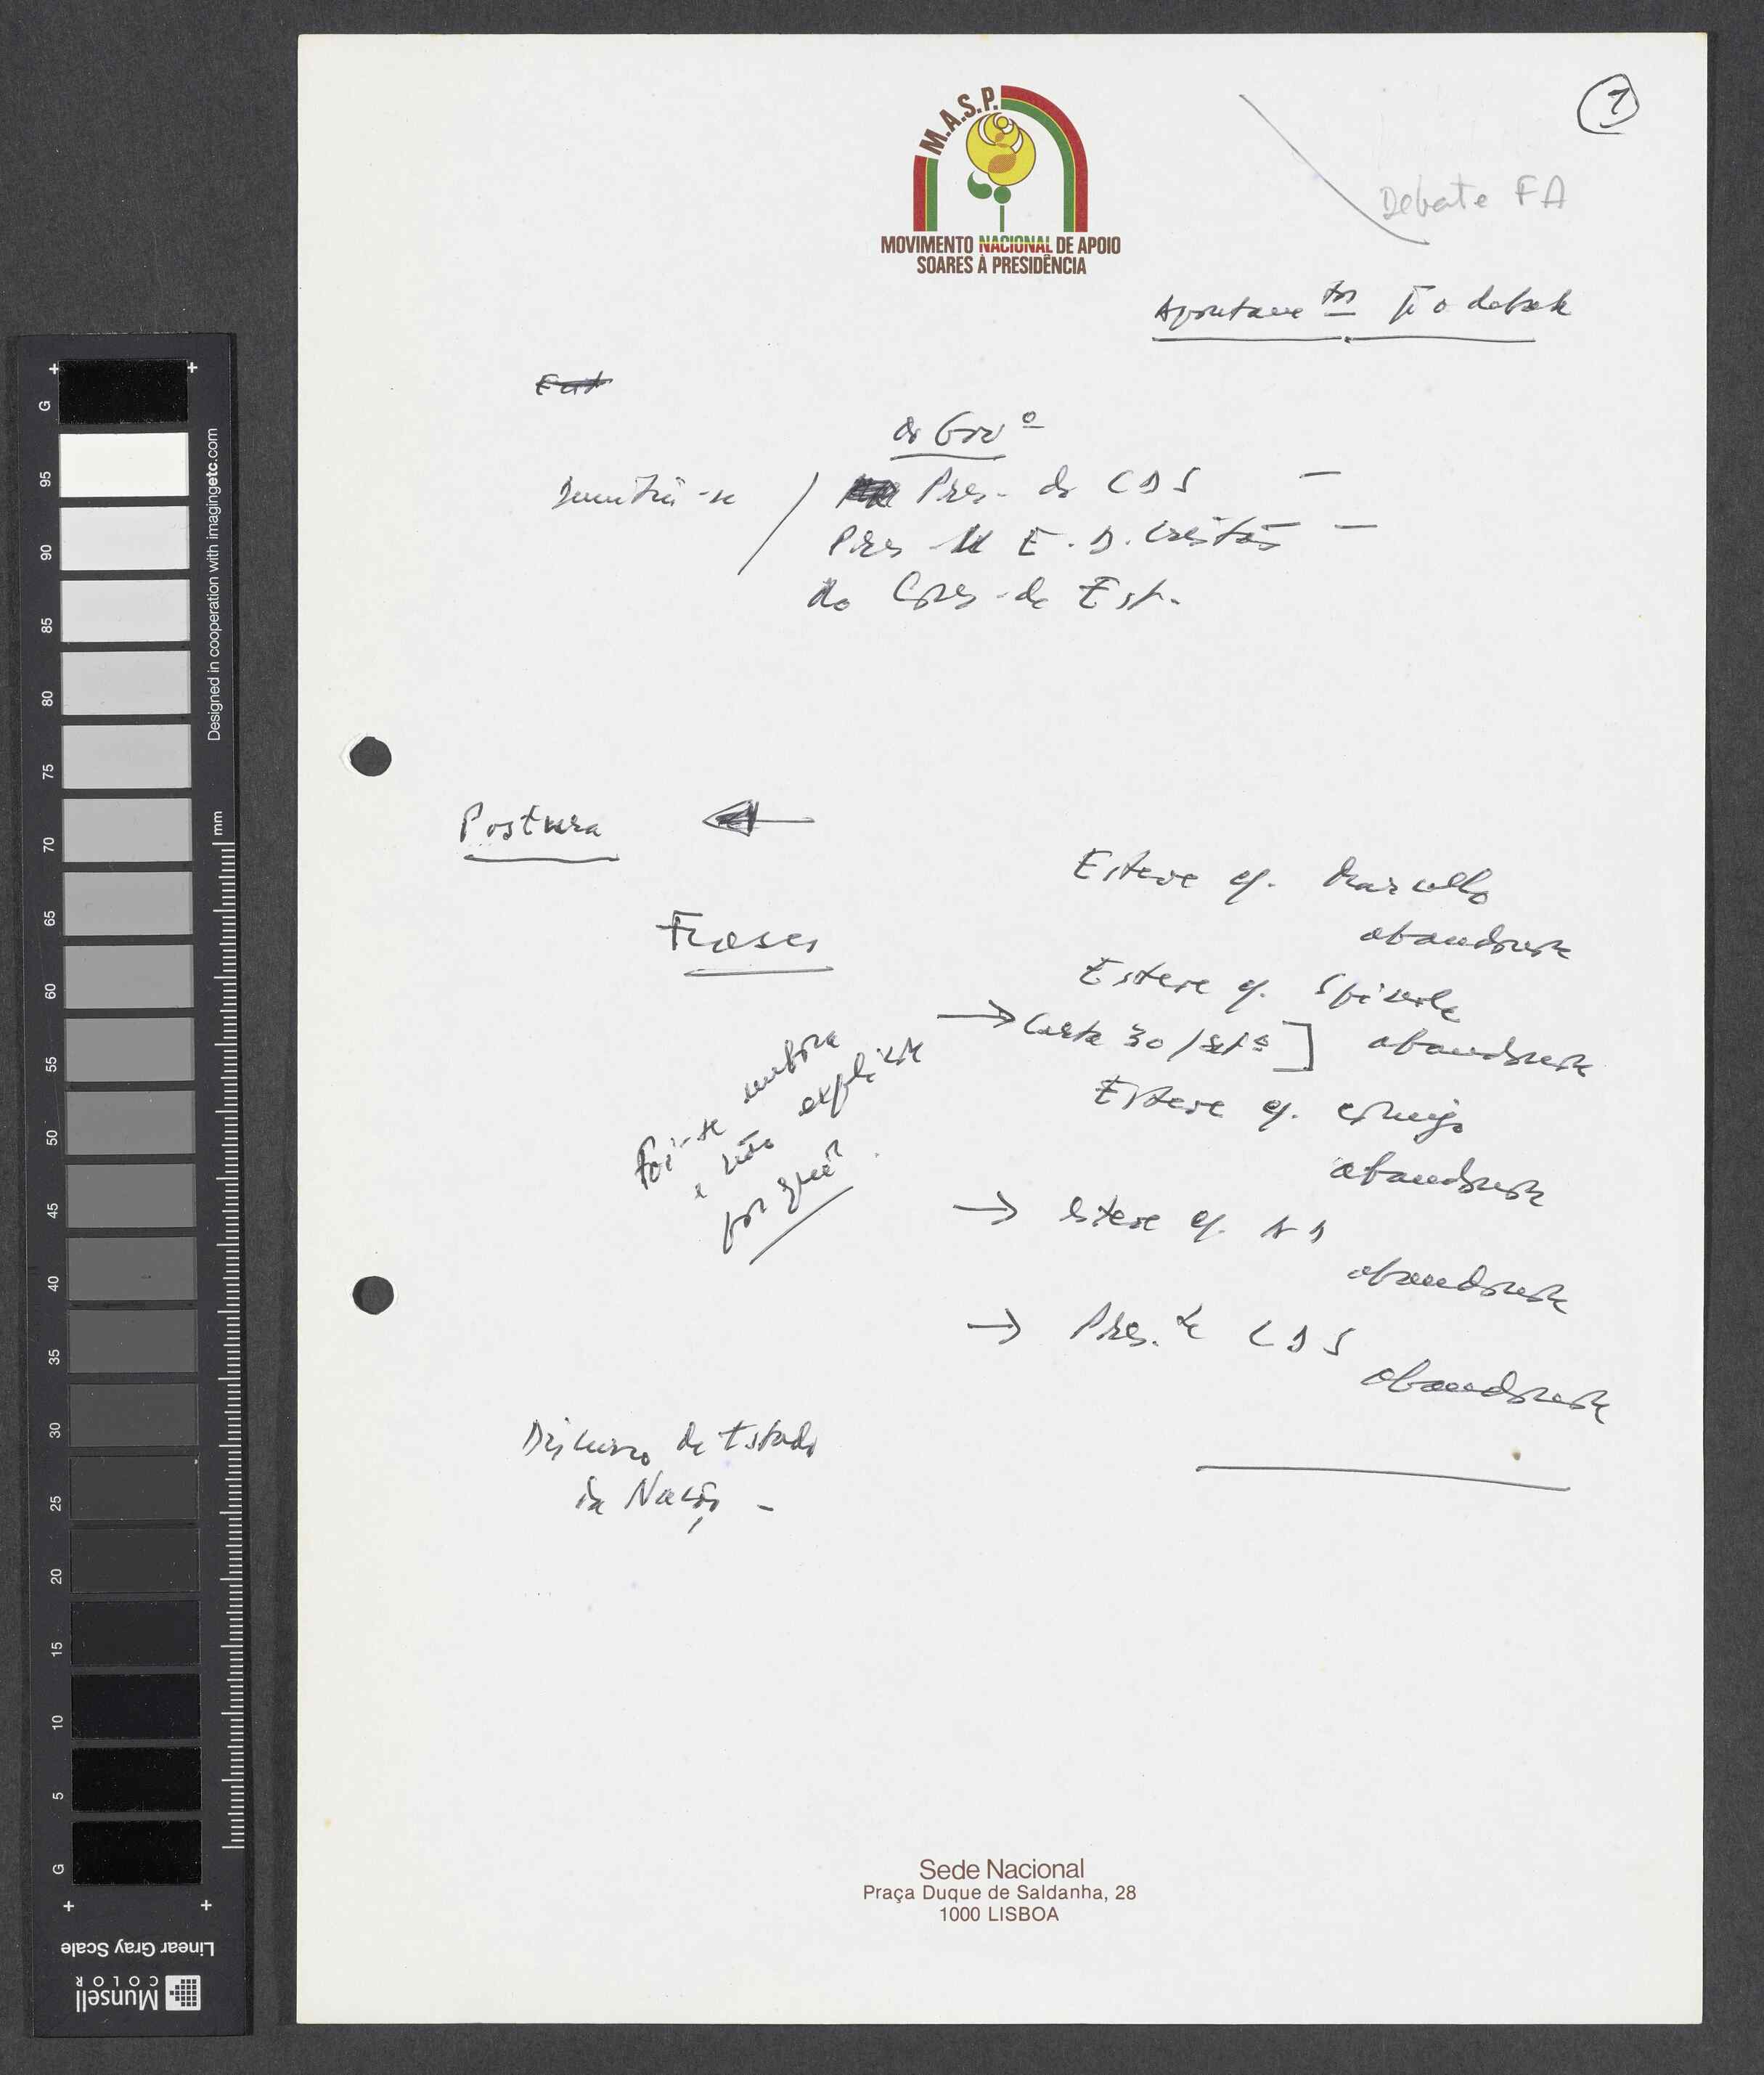 1
M.A.S.P.
MOVIMENTO NACIONAL DE APOIO
SOARES À PRESIDÊNCIA
Debate FA
Apontamen tos p. o debate
Ent
do Gov º
Demitiu-se / Pres. do CDS –
Pres U E. D. Cristãs –
do Cons. de Est.
Postura
Esteve c/. Marcello
abandonou-o
Frases
Esteve c/. Spínola
→ Carta 30/Set º ] abandonou-o
Foi-se embora
e não explicou
por quê?
Esteve c/. comigo
abandonou-o
→ Esteve c/. AD
abandonou-o
→ Pres. do CDS
abandonou-o
Discurso de Estado
da Nação –
Sede Nacional
Praça Duque de Saldanha, 28
1000 LISBOA
G
95
90
85
80
75
70
65
60
55
50
45
40
35
30
25
20
15
10
5
G
mm
Designed in cooperation with imagingetc.com
Linear Gray Scale
Munsell
COLOR